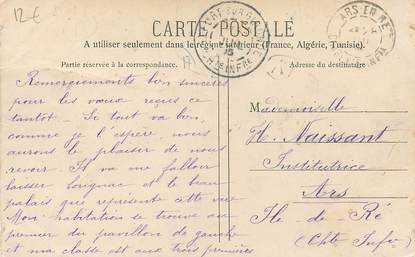 12€
CARTE POSTALE
A utiliser seulement dans le régime intérieur (France, Algérie, Tunisie).
Partie réservée à la correspondance.
Adresse du destinataire.
ARS-EN-RÉ
Remerciements bien sincères
pour les vœux reçus ce
tantôt _ Si tout va bien,
comme je l'espère, nous
aurons le plaisir de nous
revoir. Il va me falloir
laisser Longnac et le beau
palais que représente cette vue
Mon habitation se trouve au
premier du pavillon de gauche
et ma classe est aux trois premières
Mademoiselle
H. Naissant
Institutrice
Ars
Ile - de - Ré
(Chte Infre)